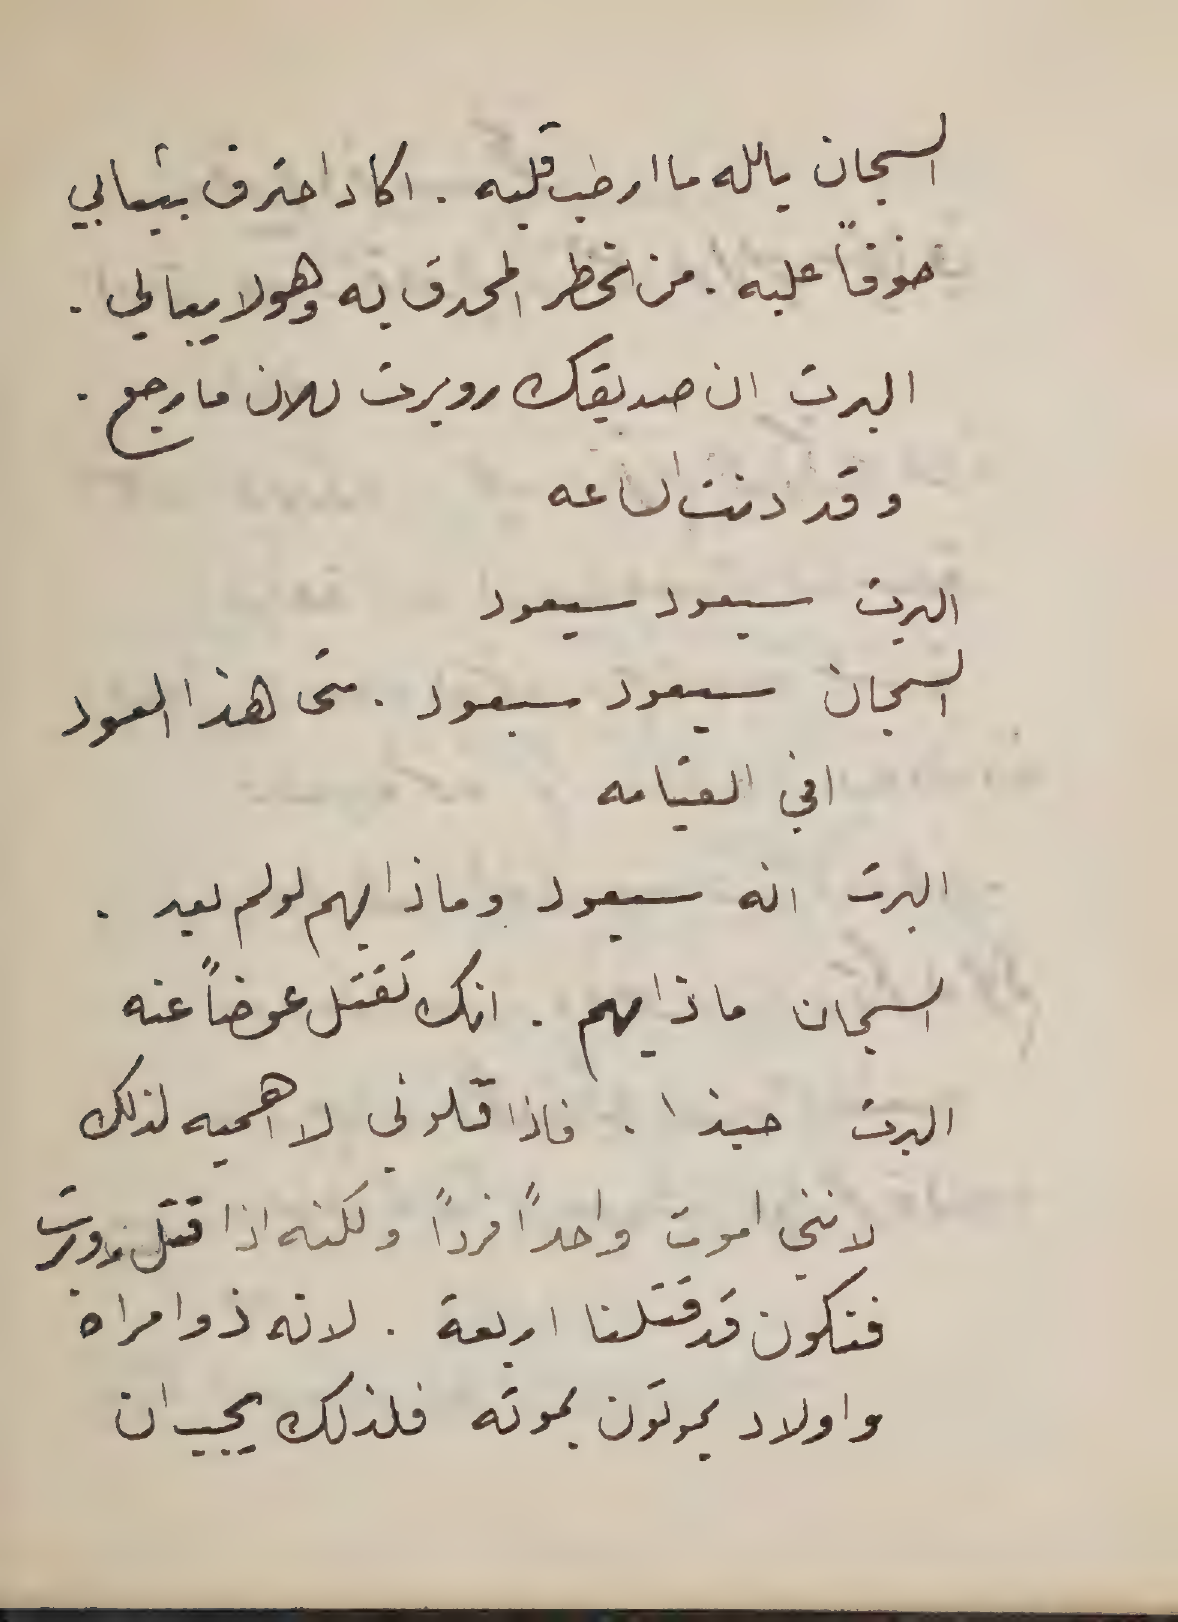 السجان يالله ما ارطب قلبه . اكاد احترق بثيابي
خوفاً عليه . من الخطر المحدق به وهو لا يبالي .
البرت ان صديقك روبرت للان ما رجع .
وقد دنت الساعه
البرت سيعود سيعود
السجان سيعود سيعود . متى هذا العود
افي القيامه
البرت انه سيعود وماذا يهم لو لم يعد .
السجان ماذا يهم . انك تقتل عوضاً عنه
البرت حبذا . فاذا قتلوني لا اهميه لذلك
لانني اموت واحداً فرداً ولكنه اذا قتل روبرت
فتكون قد قتلنا اربعة . لانه ذو امراة
واولاد يموتون بموته فلذلك يجب ان